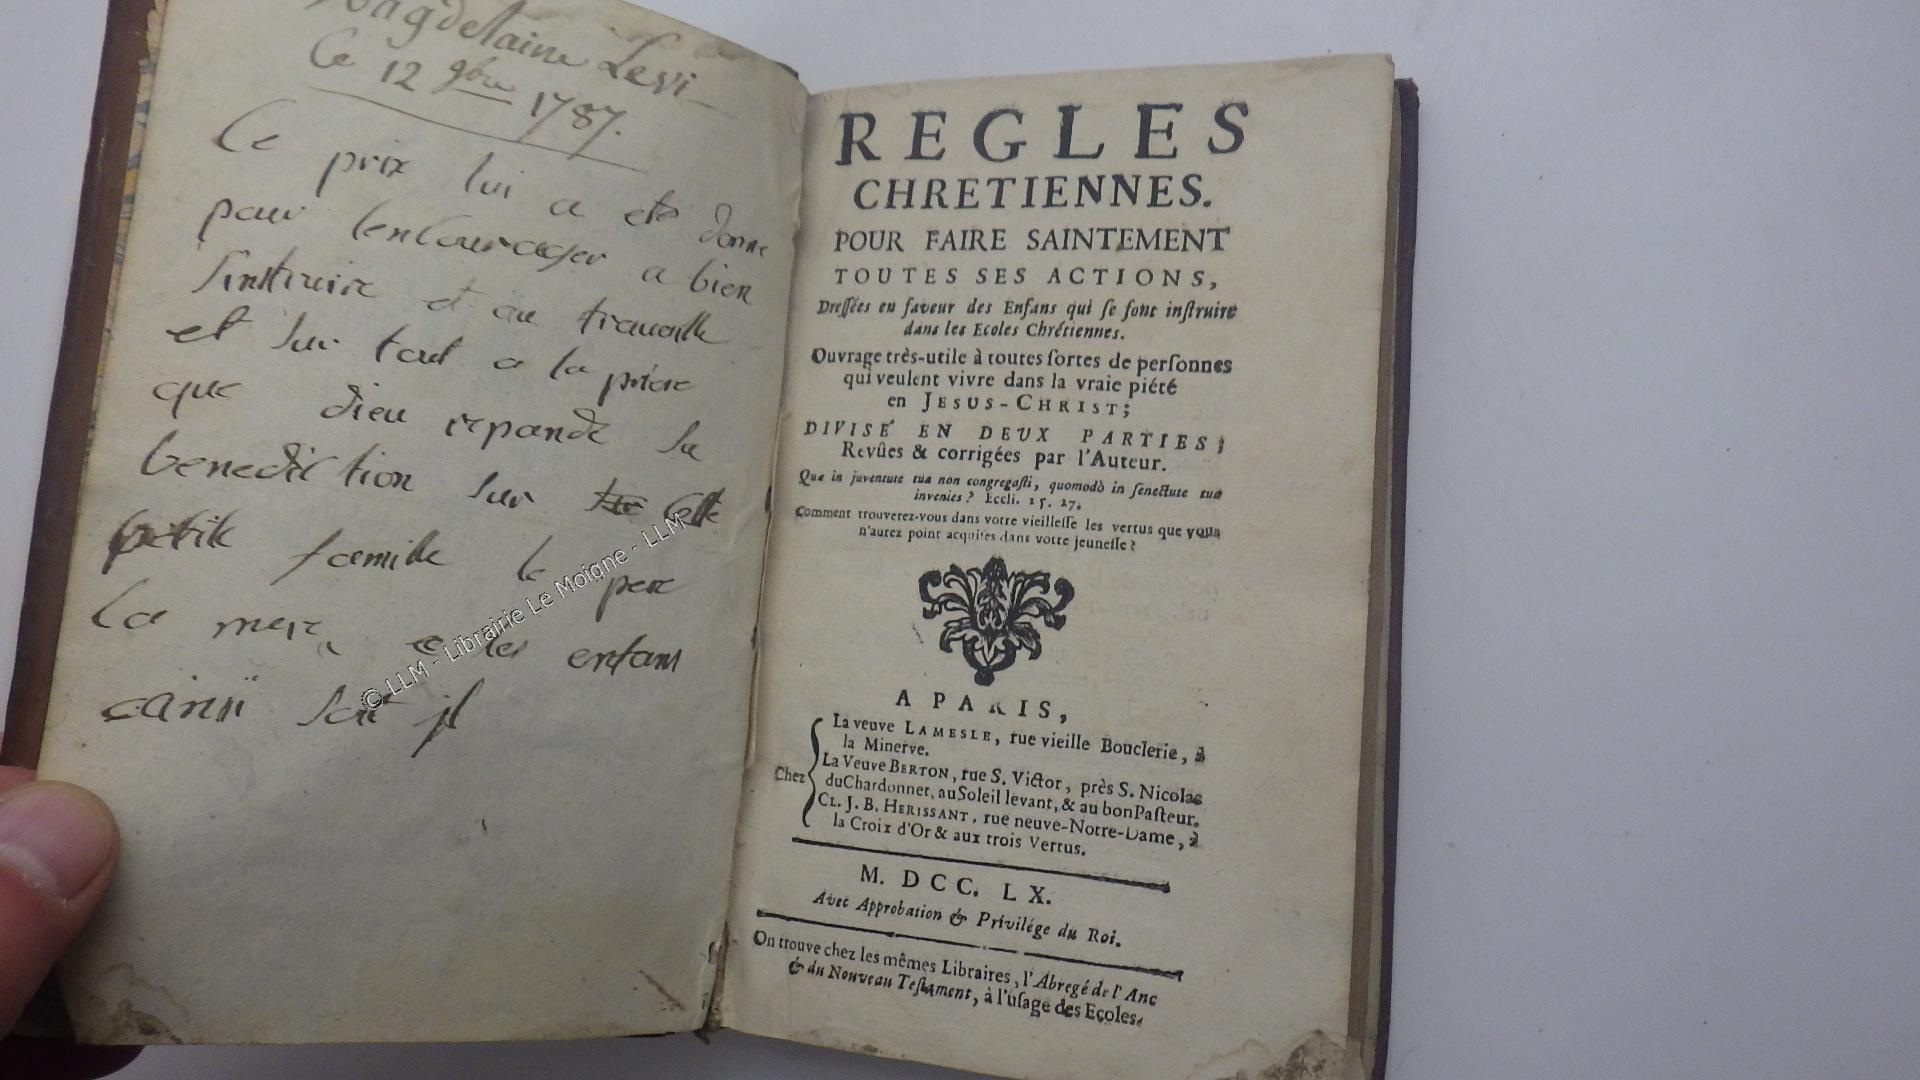 Magdelaine Levi
Ce 12 9bre 1787.
Ce prix lui a ete donne
pour lencourager a bien
sinstruire et au travaille
et sur tout a la priere
que dieu repande sa
benediction sur cette
petite famille le pere
la mere et les enfans
ainsi soit il
© LLM - Librairie Le Moigne - LLM
REGLES
CHRETIENNES.
POUR FAIRE SAINTEMENT
TOUTES SES ACTIONS,
Dreſſées en faveur des Enfans qui ſe font inſtruire
dans les Ecoles Chrétiennes.
Ouvrage très-utile à toutes ſortes de perſonnes
qui veulent vivre dans la vraie piété
en JESUS-CHRIST;
DIVISÉ EN DEUX PARTIES;
Revûes & corrigées par l'Auteur.
Quæ in juventute tua non congregaſti, quomodò in ſenectute tua
invenies? Eccli. 25. 27.
Comment trouverez-vous dans votre vieilleſſe les vertus que vous
n'aurez point acquiſes dans votre jeuneſſe?
A PARIS,
Chez
La veuve LAMESLE, rue vieille Bouclerie, à
la Minerve.
La Veuve BERTON, rue S. Victor, près S. Nicolas
du Chardonnet, au Soleil levant, & au bon Paſteur.
CL. J. B. HERISSANT, rue neuve-Notre-Dame, à
la Croix d'Or & aux trois Vertus.
M. DCC. LX.
Avec Approbation & Privilége du Roi.
On trouve chez les mêmes Libraires, l'Abregé de l'Anc
& du Nouveau Teſtament, à l'uſage des Ecoles.